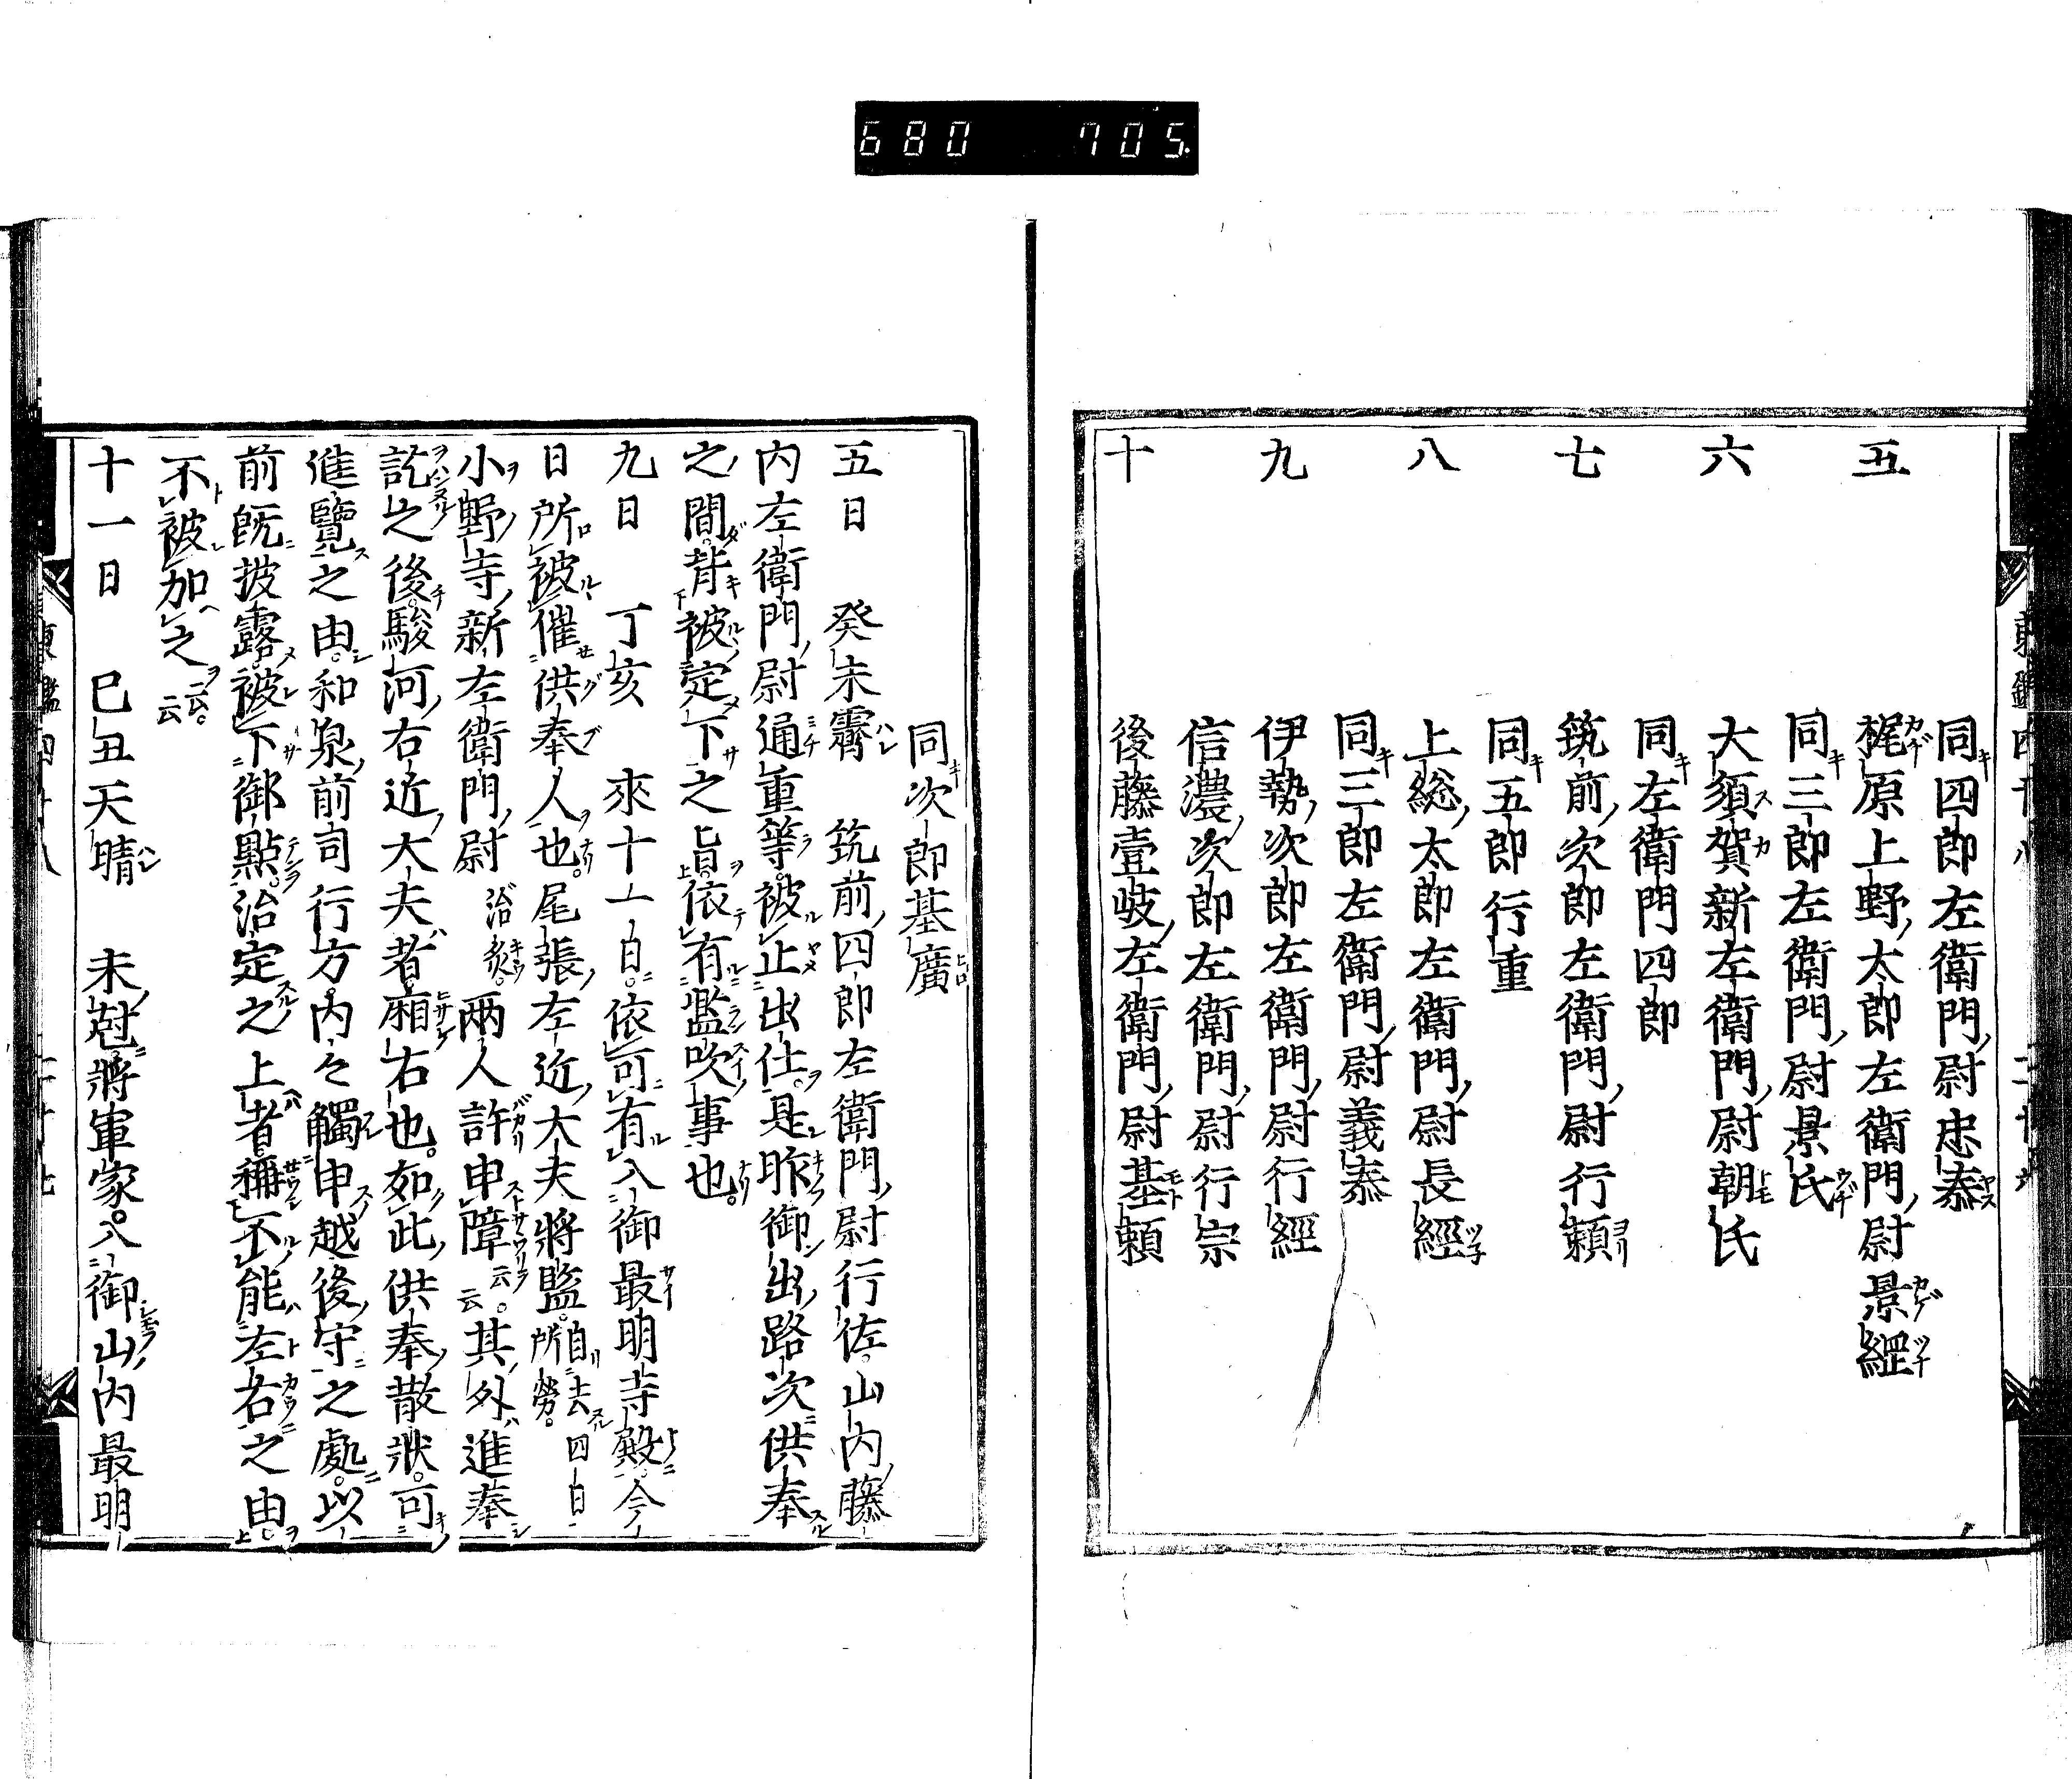 680 705
同四郎左衛門尉忠泰
五 梶原上野太郎左衛門尉景綱
同三郎左衛門尉景氏
六 大須賀新左衛門尉朝氏
同左衛門四郎
七 筑前次郎左衛門尉行頼
同五郎行重
八 上総太郎左衛門尉長經
同三郎左衛門尉義泰
九 伊勢次郎左衛門尉行經
信濃次郎左衛門尉行宗
十 後藤壹岐左衛門尉基頼
同次郎基廣
五日 癸未霽 筑前四郎左衛門尉行佐。山内藤
内左衛門尉通重等。被止出仕。是昨御出路次供奉
之間。背被定下之旨。依有濫吹事也。
九日 丁亥 來十一日。依可有入御最明寺殿。今
日所被催供奉人也。尾張左近大夫將監。自去四日所勞。
小野寺新左衛門尉 治灸。兩人許申障云云。其外進奉
訖之後。駿河右近大夫者。厢右也。如此供奉散狀。可
進覽之由。和泉前司行方。内々觸申越後守之處。以
前既披露。被下御點。治定之上者。稱不能左右之由
不被加之云云。
十一日 巳丑天晴 未尅將軍家。入御山内最明